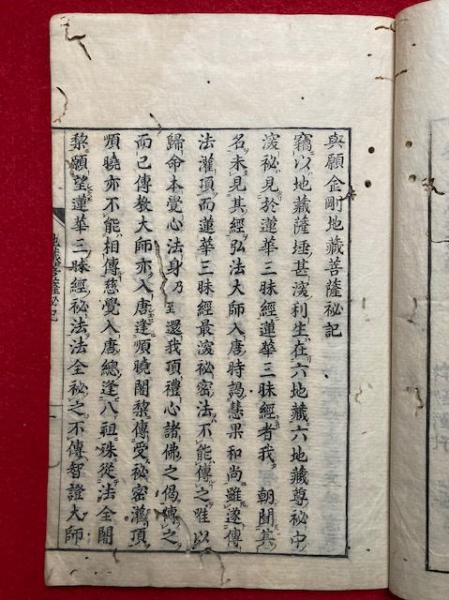 與願金剛地藏菩薩秘記
竊以地藏薩埵甚深利生在六地藏六地藏尊秘中
深秘見於蓮華三昧經蓮華三昧經者我 朝聞其
名未見其經弘法大師入唐時謁惠果和尚雖遂傳
法灌頂而蓮華三昧經最深秘密法不能傳之唯以
歸命本覺心法身乃至還我頂禮心諸佛之偈傳之
而已傳教大師亦入唐逢順曉闍黎傳受秘密灌頂
順曉亦不能相傳慈覺入唐總逢八祖殊從法全闍
黎願望蓮華三昧經秘法法全秘之不傳智證大師
地藏菩薩秘記